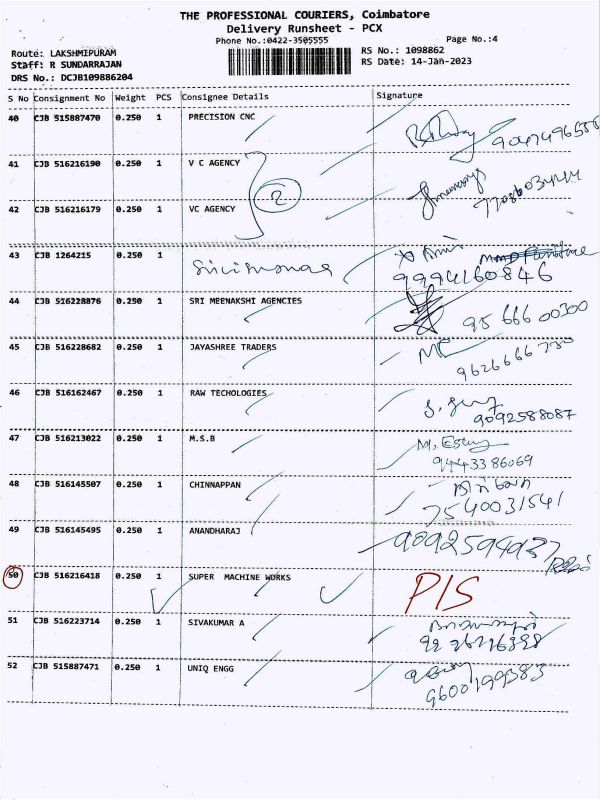 THE PROFESSIONAL COURIERS, Coimbatore
Delivery Runsheet - PCX
Phone No.:0422-3505555
Page No.:4
Route: LAKSHMIPURAM
RS No.: 1098862
Staff: R SUNDARRAJAN
RS Date: 14-Jan-2023
DRS No.: DCJB109886204
S No Consignment No Weight PCS Consignee Details Signature
40 CJB 515887470 0.250 1 PRECISION CNC
41 CJB 516216190 0.250 1 V C AGENCY
2
42 CJB 516216179 0.250 1 VC AGENCY
43 CJB 1264215 0.250 1
9994160846
44 CJB 516228876 0.250 1 SRI MEENAKSHI AGENCIES
95 666 00300
45 CJB 516228682 0.250 1 JAYASHREE TRADERS
46 CJB 516162467 0.250 1 RAW TECHOLOGIES
9092588087
47 CJB 516213022 0.250 1 M.S.B
9443386069
48 CJB 516145507 0.250 1 CHINNAPPAN
7540031541
49 CJB 516145495 0.250 1 ANANDHARAJ
50 CJB 516216418 0.250 1 SUPER MACHINE WORKS P/S
51 CJB 516223714 0.250 1 SIVAKUMAR A
52 CJB 515887471 0.250 1 UNIQ ENGG
9600199383